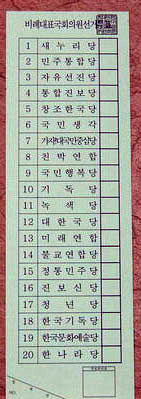 비례대표국회의원선거
1 새누리당
2 민주통합당
3 자유선진당
4 통합진보당
5 창조한국당
6 국민생각
7 가자!대국민중심당
8 친박연합
9 국민행복당
10 기독당
11 녹색당
12 대한국당
13 미래연합
14 불교연합당
15 정통민주당
16 진보신당
17 청년당
18 한국기독당
19 한국문화예술당
20 한나라당